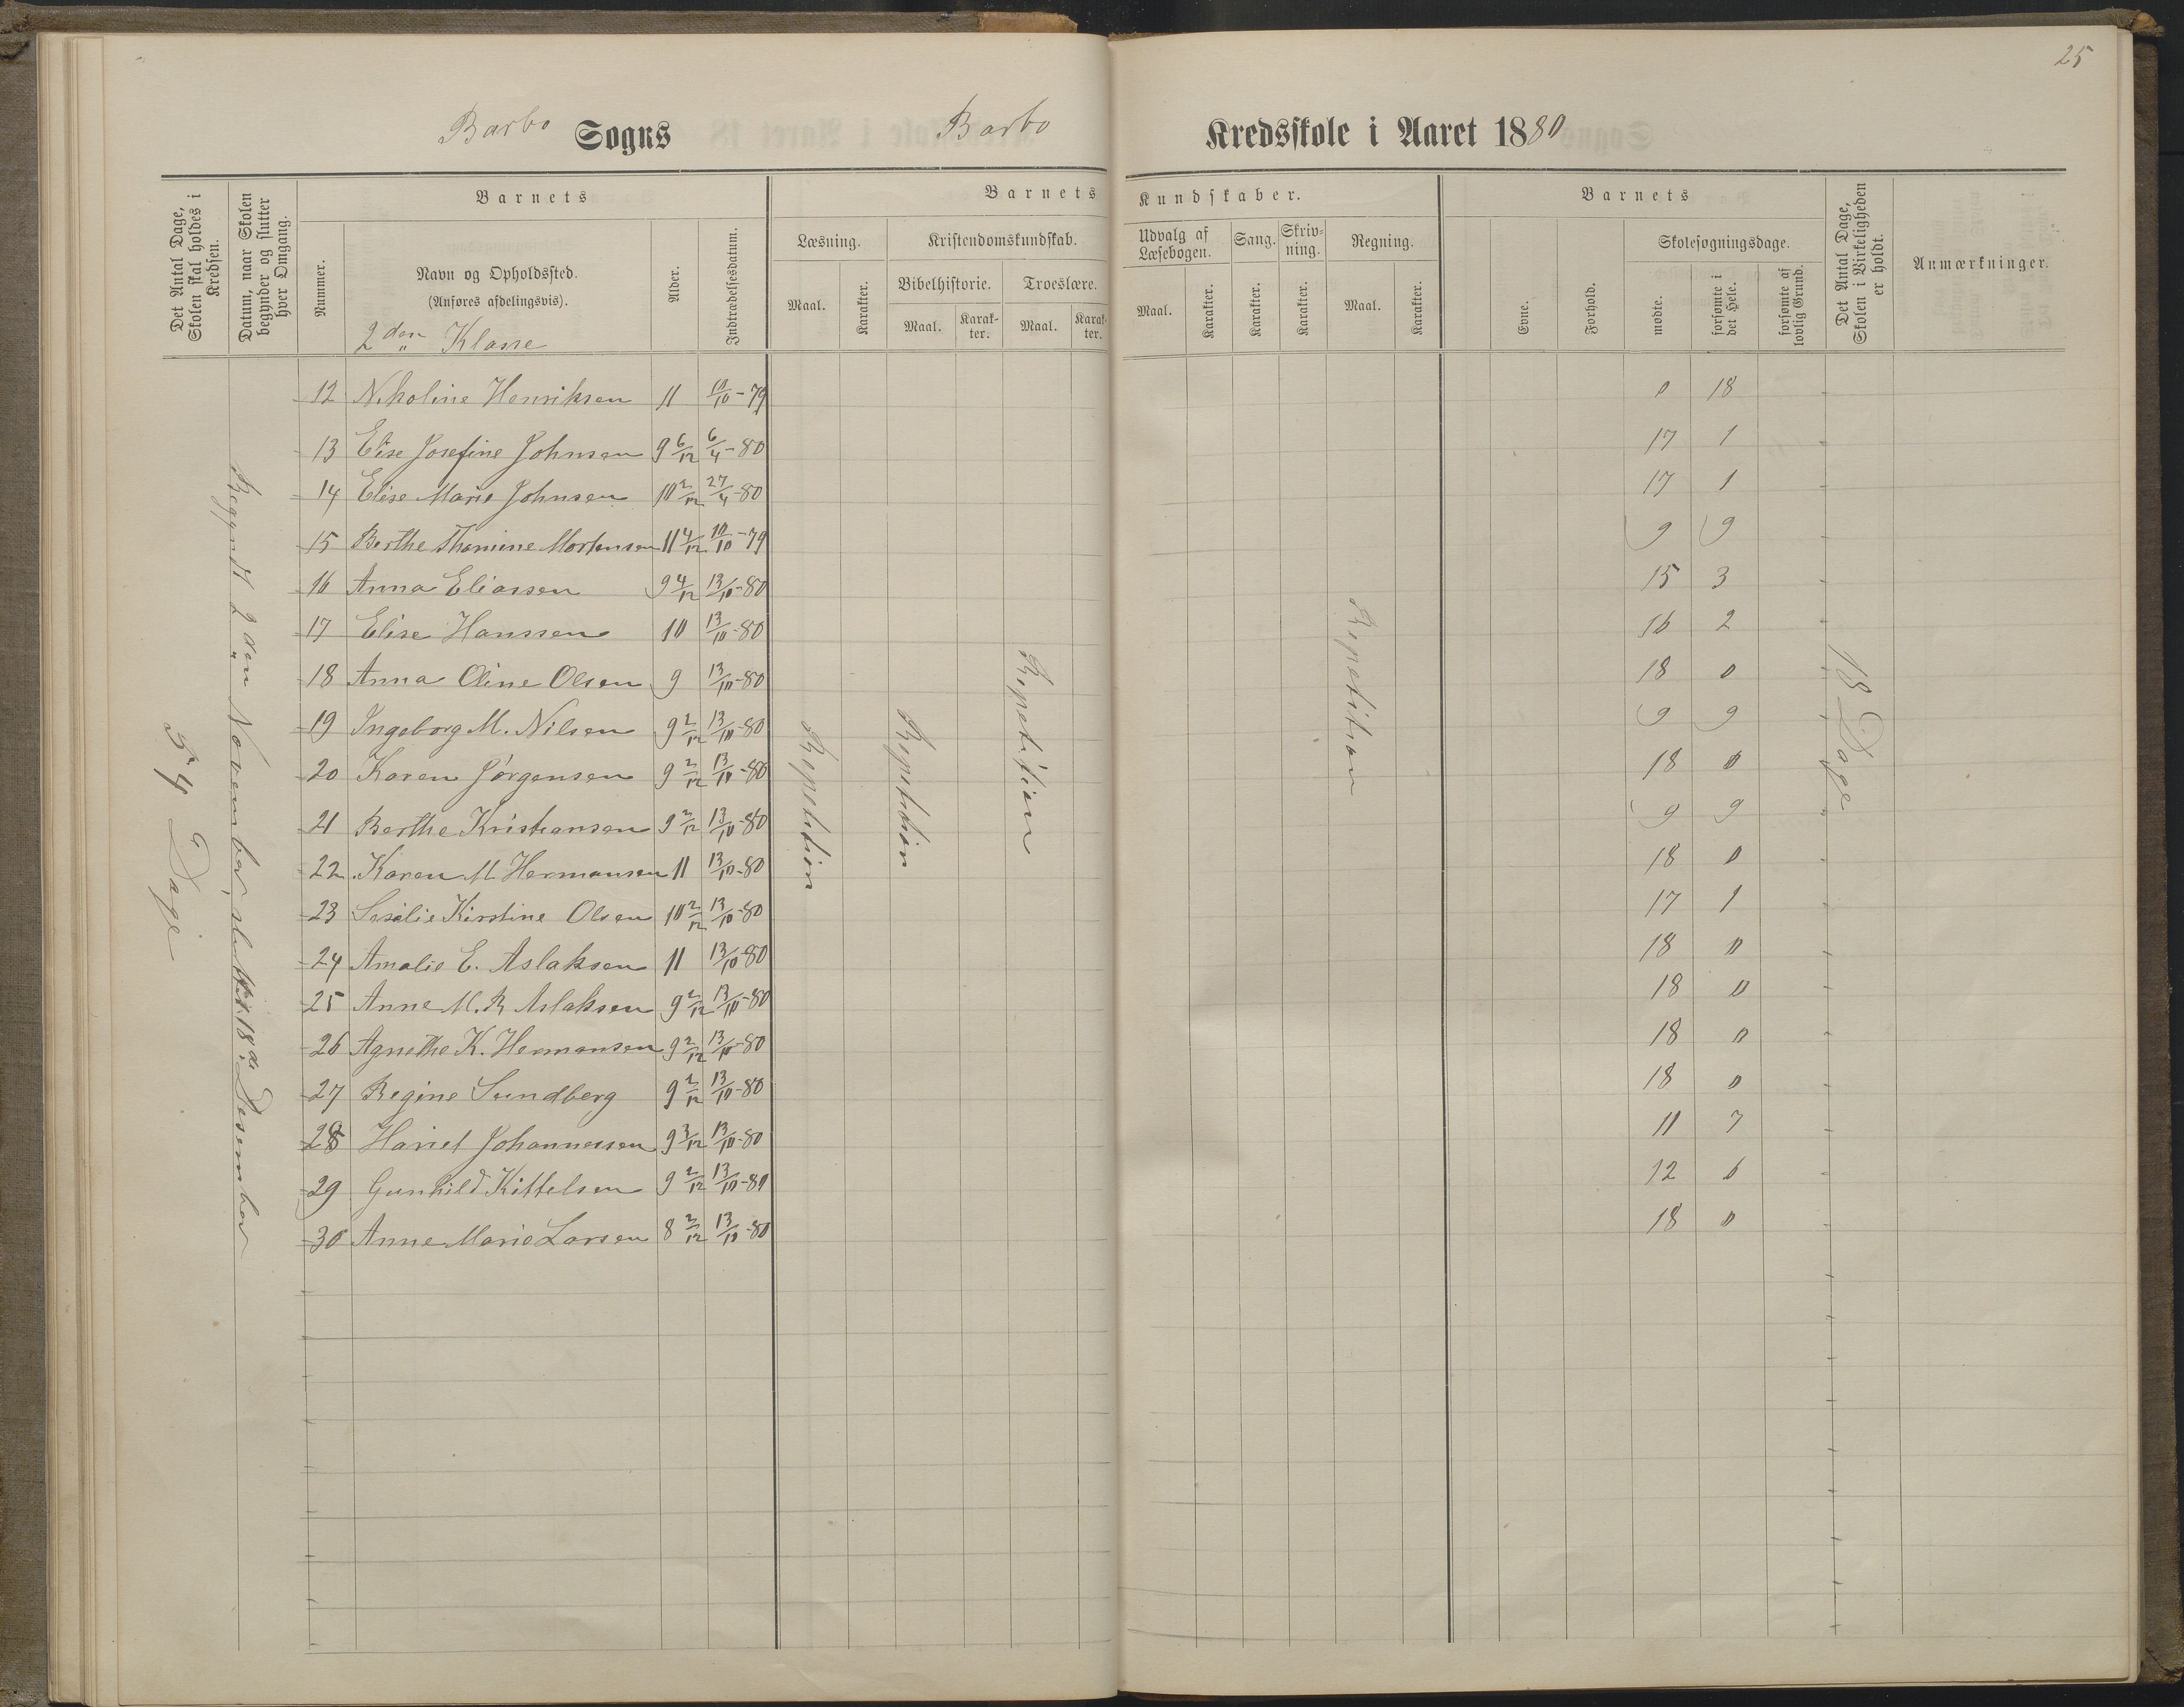 25
Barbo Sogns Barbo Kredsskole i Aaret 1880
Det Antal Dage, Skolen skal holdes i Kredsen.
Datum, naar Skolen begynder og slutter hver Omgang.
Barnets
Nummer.
Navn og Opholdssted.
(Anføres afdelingsvis).
2den Klasse
Alder.
Indtrædelsesdatum.
Barnets Kundskaber.
Læsning.
Maal.
Karakter.
Kristendomskundskab.
Bibelhistorie.
Maal.
Karakter.
Troeslære.
Maal.
Karakter.
Udvalg af Læsebogen.
Maal.
Karakter.
Sang.
Karakter.
Skrivning.
Karakter.
Regning.
Maal.
Karakter.
Barnets
Evne.
Forhold.
Skolesøgningsdage.
mødte.
forsømte i det Hele.
forsømte af lovlig Grund.
Det Antal Dage, Skolen i Virkeligheden er holdt.
Anmærkninger.
12 Nikoline Henriksen 11 10/10-79 0 18
13 Elise Josefine Johnsen 9 6/12 6/4-80 17 1
14 Elise Marie Johnsen 10 2/12 27/4-80 17 1
15 Berthe Thomine Mortensen 11 4/12 10/10-79 9 9
16 Anna Eliassen 9 4/12 13/10-80 15 3
17 Elise Hanssen 10 13/10-80 16 2
18 Anna Oline Olsen 9 13/10-80 18 0
19 Ingeborg M. Nilsen 9 2/12 13/10-80 9 9
20 Karen Jørgensen 9 2/12 13/10-80 18 0
21 Berthe Kristiansen 9 2/12 13/10-80 9 9
22 Karen M Hermansen 11 13/10-80 18 0
23 Sesilie Kirstine Olsen 10 2/12 13/10-80 17 1
24 Amalie E. Aslaksen 11 13/10-80 18 0
25 Anne M. R Aslaksen 9 2/12 13/10-80 18 0
26 Agnethe K. Hermansen 9 2/12 13/10-80 18 0
27 Regine Sundberg 9 2/12 13/10-80 18 0
28 Hariet Johannessen 9 3/12 13/10-80 11 7
29 Gunhild Kittelsen 9 2/12 13/10-80 12 6
30 Anne Marie Larsen 8 2/12 13/10-80 18 0
54 Dage
Begyndt 2den November, sluttet 18de Desember
Repetition
Repetition
Repetition
Repetition
18 Dage